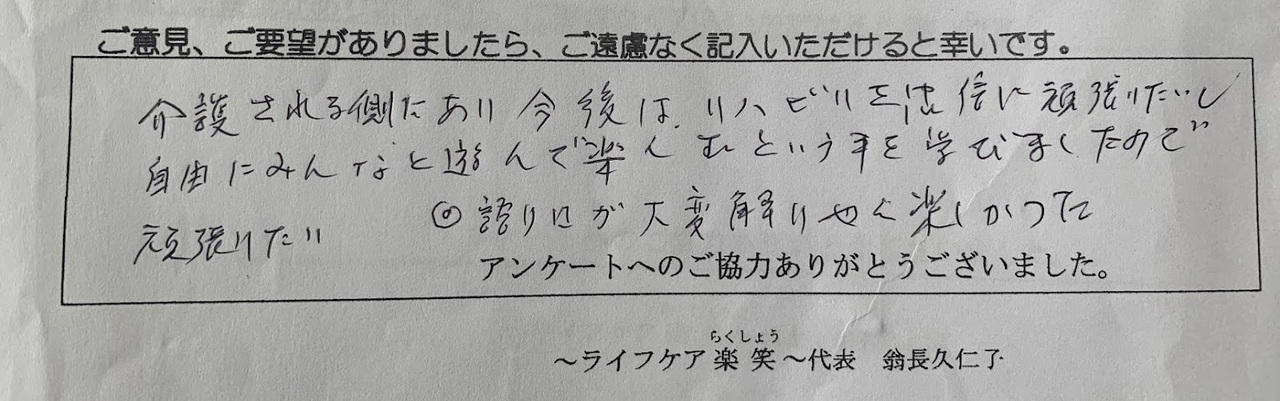 ご意見、ご要望がありましたら、ご遠慮なく記入いただけると幸いです。
介護される側たあり今後は、リハビリを倍に頑張りたいし
自由にみんなと遊んで楽しむという事を学びましたので
頑張りたい
◎語り口が大変解りやく楽しかった
アンケートへのご協力ありがとうございました。
らくしょう
～ライフケア楽笑～代表 翁長久仁子